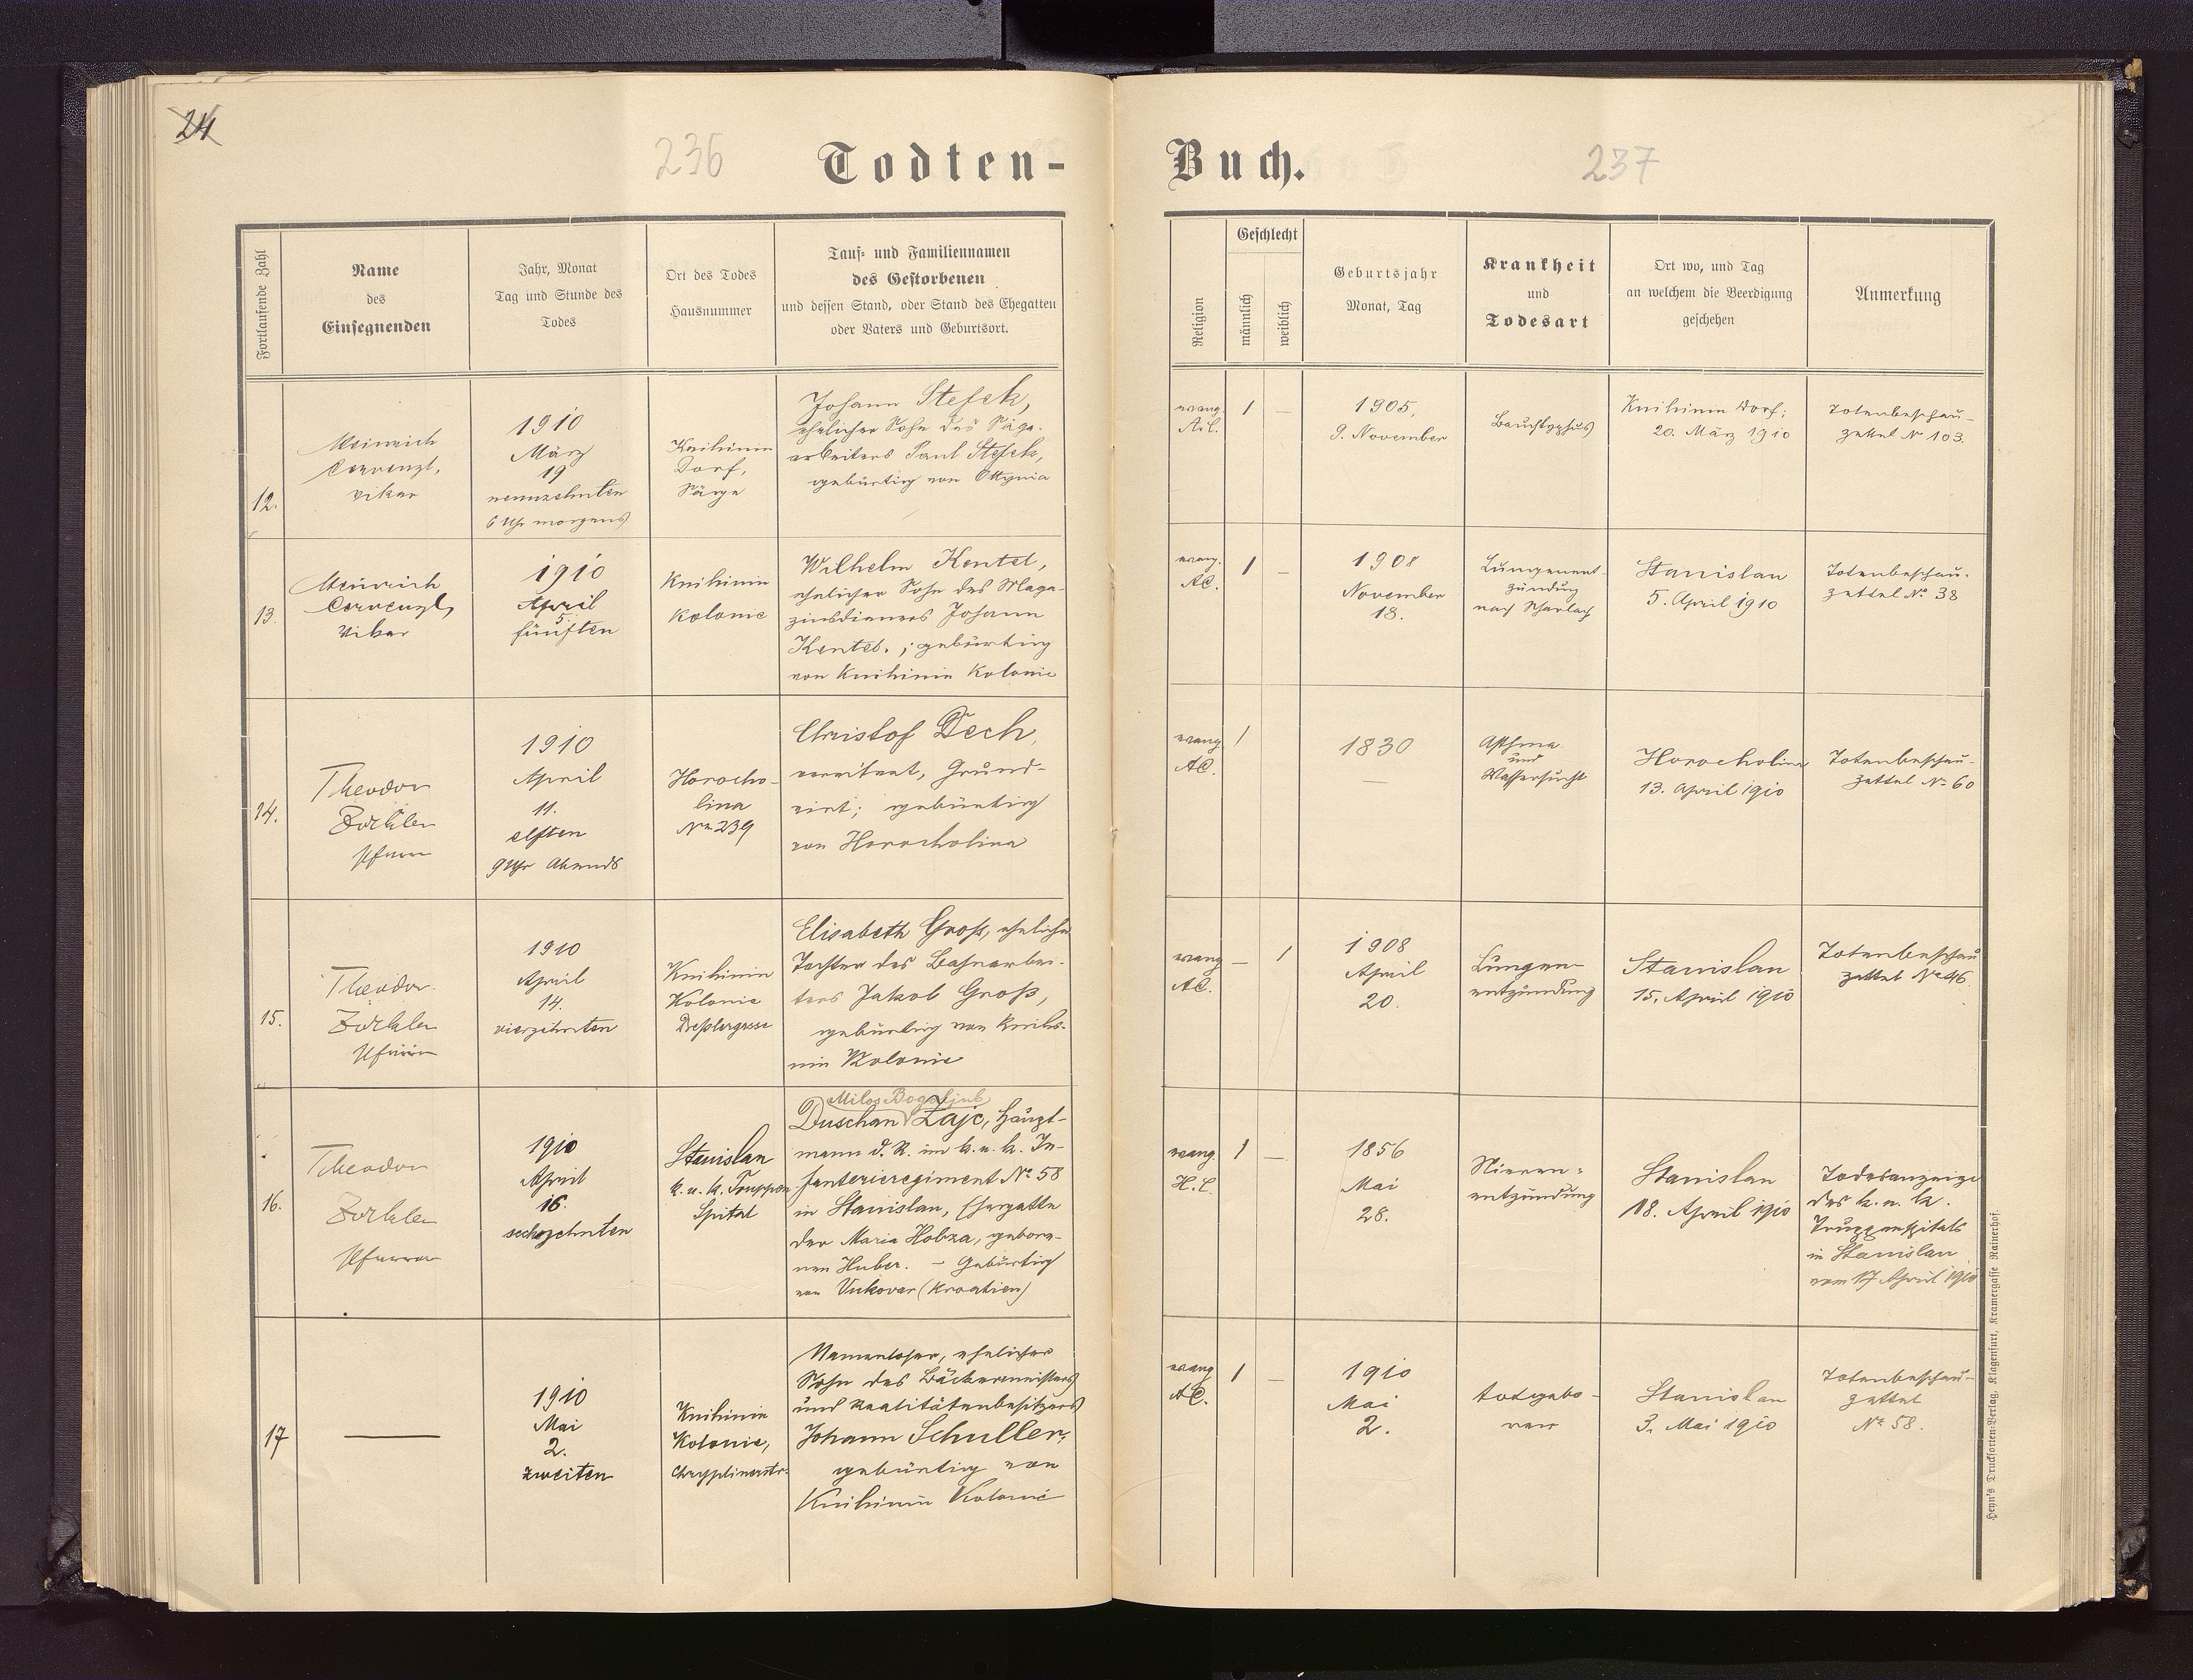 24
236
Todten-
Buch.
237
Fortlaufende Zahl
Name
des
Einsegnenden
Jahr, Monat
Tag und Stunde des
Todes
Ort des Todes
Hausnummer
Tauf- und Familiennamen
des Gestorbenen
und dessen Stand, oder Stand des Ehegatten
oder Vaters und Geburtsort.
Religion
Geschlecht
männlich
weiblich
Geburtsjahr
Monat, Tag
Krankheit
und
Todesart
Ort wo, und Tag
an welchem die Beerdigung
geschehen
Anmerkung
12.
Heinrich
Vikar
1910
März
19
neunzehnten
6 Uhr morgens
Knihinin
Dorf,
Säge
Johann Stefek,
ehelicher Sohn des Säge-
arbeiters Paul Stefek,
gebürtig von Ottynia
evang.
1
—
1905,
9. November
Bauchtyphus
Knihinin Dorf;
20. März 1910
Totenbeschau-
zettel № 103.
13.
Heinrich
Vikar
1910
April
5.
fünften
Knihinin
Kolonie
Wilhelm Kentel,
ehelicher Sohn des Maga-
zinsdieners Johann
Kentel.; gebürtig
von Knihinin Kolonie
evang.
AC.
1
—
1908
November
18.
Lungenent-
zündung
nach Scharlach
Stanislau
5. April 1910
Totenbeschau-
zettel № 38
14.
Theodor
Zöckler
Pfarrer
1910
April
11.
elften
9 Uhr Abends
Horocho-
lina
№ 239
Christof Dech,
verwitwet, Grund-
wirt; gebürtig
von Horocholina
evang.
AC.
1
1830
—
Asthma
und
Wassersucht
Horocholina
13. April 1910
Totenbeschau-
zettel № 60
15.
Theodor
Zöckler
Pfarrer
1910
April
14.
vierzehnten
Knihinin
Kolonie
Dresslergasse
Elisabeth Groß, eheliche
Tochter des Bahnarbei-
ters Jakob Groß,
gebürtig von Knihi-
nin Kolonie
evang
AC.
—
1
1908
April
20.
Lungen-
entzündung
Stanislau
15. April 1910
Totenbeschau
zettel № 46
16.
Theodor
Zöckler
Pfarrer
1910
April
16.
sechzehnten
Stanislau
k. u. k. Truppen
Spital
Milos Bogoljub
Duschan Zajc, Haupt-
mann d. R. im k. u. k. In-
fanterieregiment № 58
in Stanislau, Ehegatte
der Maria Hobza, gebore-
nen Huber. – Gebürtig
von Vukovar (Kroatien)
evang.
H.C.
1
—
1856
Mai
28.
Nieren-
entzündung
Stanislau
18. April 1910
Todesanzeige
des k. u. k.
Truppenspitals
in Stanislau
vom 17 April 1910
17
—
1910
Mai
2.
zweiten
Knihinin
Kolonie,
Chryplinerstr.
Namenloser, ehelicher
Sohn des Bäckermeisters
und Realitätenbesitzers
Johann Schuller,
gebürtig von
Knihinin Kolonie
evang
AC.
1
—
1910
Mai
2.
totgebo-
ren
Stanislau
3. Mai 1910
Totenbeschau-
zettel
№ 58.
Heyn's Drucksorten-Verlag, Klagenfurt, Kramergasse Rainerhof.